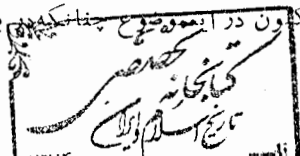 در اینموضوع چنانکه
کتابخانه تخصصی
تاریخ اسلام و ایران